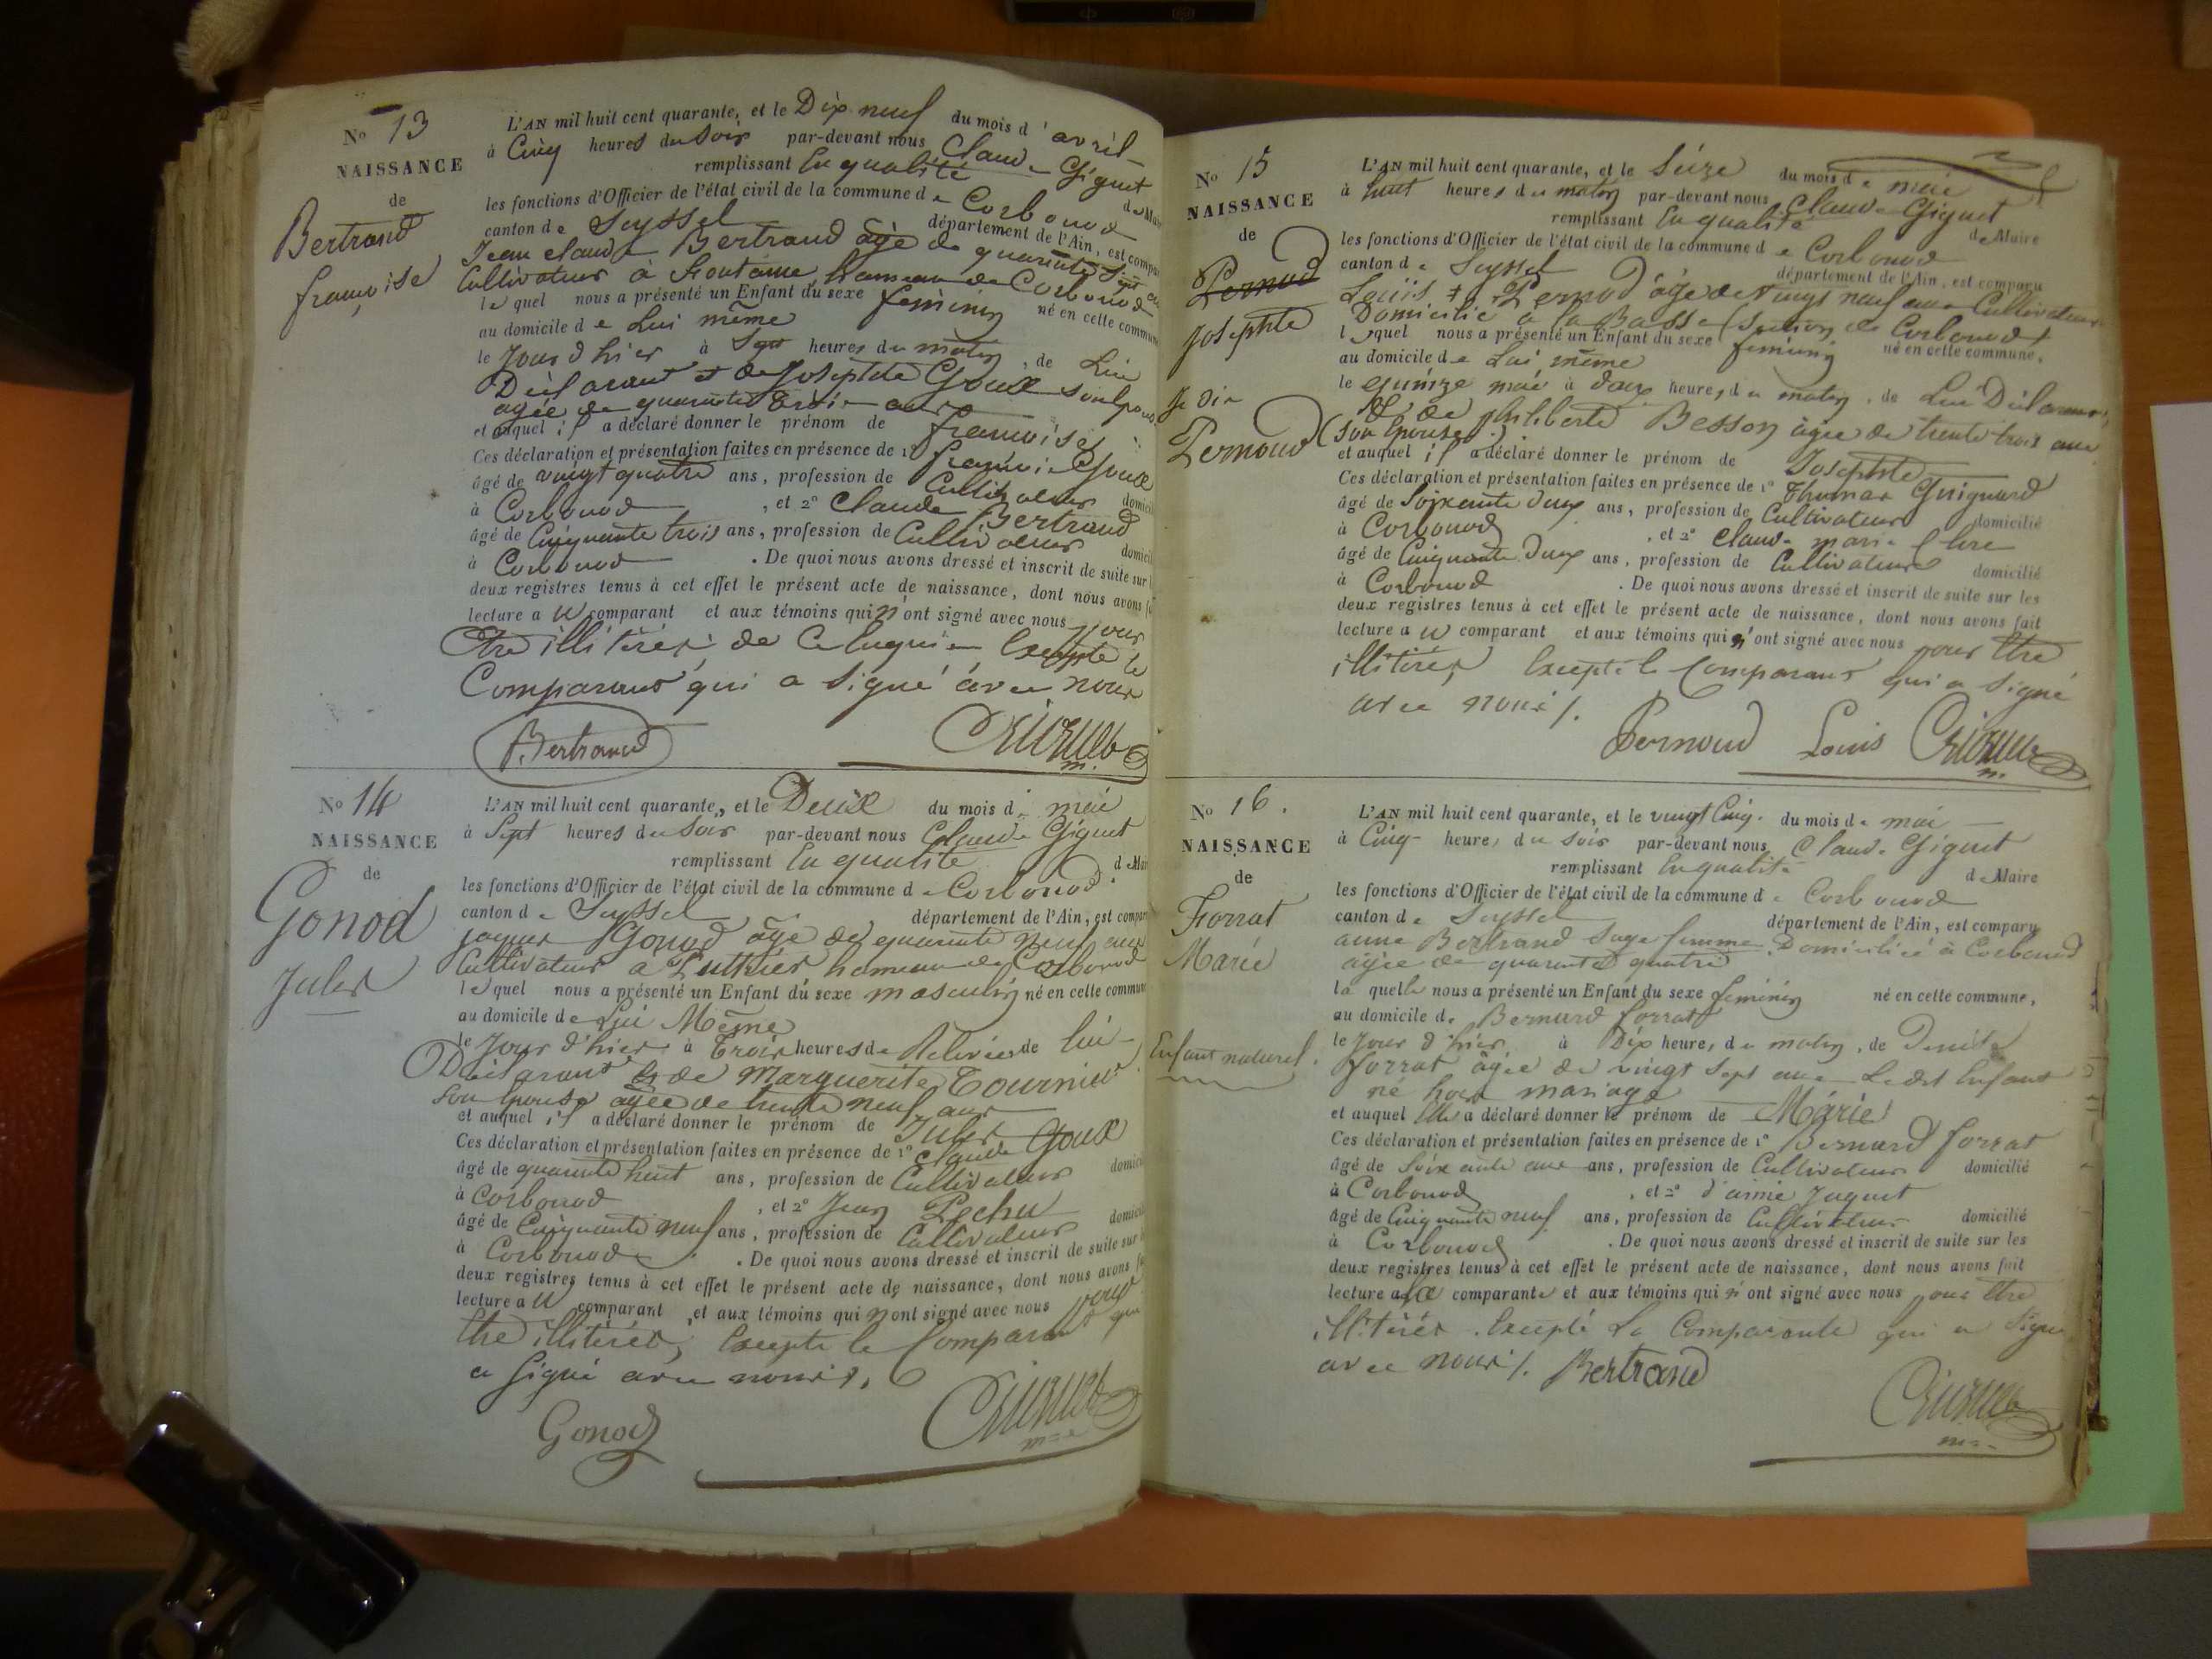 No 13
NAISSANCE
de
Bertrand
françoise
L'AN mil huit cent quarante, et le Dix neuf du mois d'avril
à Cinq heures du Soir par-devant nous Claude Giguet
remplissant En qualité de Mai
les fonctions d'Officier de l'état civil de la commune de Corbonod
canton de Seyssel département de l'Ain, est compa
Jean claude Bertrand âgé de quarante Sept ans
Cultivateur à fontaine hameau de Corbonod
le quel nous a présenté un Enfant du sexe feminin né en cette commune
au domicile de Lui même
le Jour d'hier à Sept heures du matin, de Lui
Déclarant et de Josephte Goux son épouse
agée de quarante trois ans
et auquel il a déclaré donner le prénom de françoise
Ces déclaration et présentation faites en présence de 1° françois Goux
âgé de vingt quatre ans, profession de Cultivateur domicil
à Corbonod, et 2° Claude Bertrand
âgé de Cinquante trois ans, profession de Cultivateur domicil
à Corbonod. De quoi nous avons dressé et inscrit de suite sur l
deux registres tenus à cet effet le présent acte de naissance, dont nous avons f
lecture au comparant et aux témoins qui n'ont signé avec nous pour
Etre illitérés de Ce Enquis Excepté le
Comparant qui a Signé avec nous
Bertrand Giguet
m.
No 14
NAISSANCE
de
Gonod
Jules
L'AN mil huit cent quarante, et le Deux du mois de mai
à Sept heures du Soir par-devant nous Claude Giguet
remplissant En qualité de Mai
les fonctions d'Officier de l'état civil de la commune de Corbonod
canton de Seyssel département de l'Ain, est compar
jaques Gonod âgé de quarante neuf ans
Cultivateur à Puthier hameau de Corbonod
lequel nous a présenté un Enfant du sexe masculin né en cette commun
au domicile de Lui Même
le Jour d'hier à Trois heures de Relevée de lui
Déclarant et de Marguerite Tournier
Son épouse agée de trente neuf ans
et auquel il a déclaré donner le prénom de Jules
Ces déclaration et présentation faites en présence de 1° Claude Goux
âgé de quarante huit ans, profession de Cultivateur domici
à Corbonod, et 2° Jean Pochet
âgé de Cinquante neuf ans, profession de Cultivateur domici
à Corbonod. De quoi nous avons dressé et inscrit de suite sur
deux registres tenus à cet effet le présent acte de naissance, dont nous avons f
lecture au comparant, et aux témoins qui n'ont signé avec nous pour
Etre illitérés, Excepté le Comparant qui
a Signé avec nous.
Gonod Giguet
No 15
NAISSANCE
de
Pernod
Josephte
Je dis
Pernoud
L'AN mil huit cent quarante, et le Seize du mois de mai
à huit heures du matin par-devant nous Claude Giguet
remplissant En qualité de Maire
les fonctions d'Officier de l'état civil de la commune de Corbonod
canton de Seyssel département de l'Ain, est comparu
Louis Pernod âgé de vingt neuf ans Cultivateur
Domicilié à la Basse Section de Corbonod
lequel nous a présenté un Enfant du sexe feminin né en cette commune,
au domicile de Lui même
le quinze mai à deux heures du matin, de Lui Déclarant,
Et de philiberte Besson agée de trente trois ans
(Son Epouse)
et auquel il a déclaré donner le prénom de Josephte
Ces déclaration et présentation faites en présence de 1° Thomas Guignard
âgé de Soixante deux ans, profession de Cultivateur domicilié
à Corbonod, et 2° Claude marie Clere
âgé de Cinquante deux ans, profession de Cultivateur domicilié
à Corbonod. De quoi nous avons dressé et inscrit de suite sur les
deux registres tenus à cet effet le présent acte de naissance, dont nous avons fait
lecture au comparant et aux témoins qui n'ont signé avec nous pour Etre
illitérés Excepté le Comparant qui a Signé
avec nous /.
Pernoud Louis Giguet
m.
No 16.
NAISSANCE
de
Forrat
Marie
Enfant naturel.
L'AN mil huit cent quarante, et le vingt Cinq du mois de mai
à Cinq heures du Soir par-devant nous Claude Giguet
remplissant En qualité de Maire
les fonctions d'Officier de l'état civil de la commune de Corbonod
canton de Seyssel département de l'Ain, est comparu
anne Bertrand Sage femme Domiciliée à Corbonod
agée de quarante quatre
laquelle nous a présenté un Enfant du sexe feminin né en cette commune,
au domicile de Bernard forrat
le Jour d'hier à Dix heures du matin, de Denise
forrat âgée de vingt Sept ans Ledit Enfant
né hors mariage
et auquel Elle a déclaré donner le prénom de Marie
Ces déclaration et présentation faites en présence de 1° Bernard forrat
âgé de Soixante ans, profession de Cultivateur domicilié
à Corbonod, et 2° d'aimé Juguet
âgé de Cinquante neuf ans, profession de Cultivateur domicilié
à Corbonod. De quoi nous avons dressé et inscrit de suite sur les
deux registres tenus à cet effet le présent acte de naissance, dont nous avons fait
lecture à la comparante et aux témoins qui n'ont signé avec nous pour Etre
illitérés. Excepté La Comparante qui a Signé
avec nous /. Bertrand
Giguet